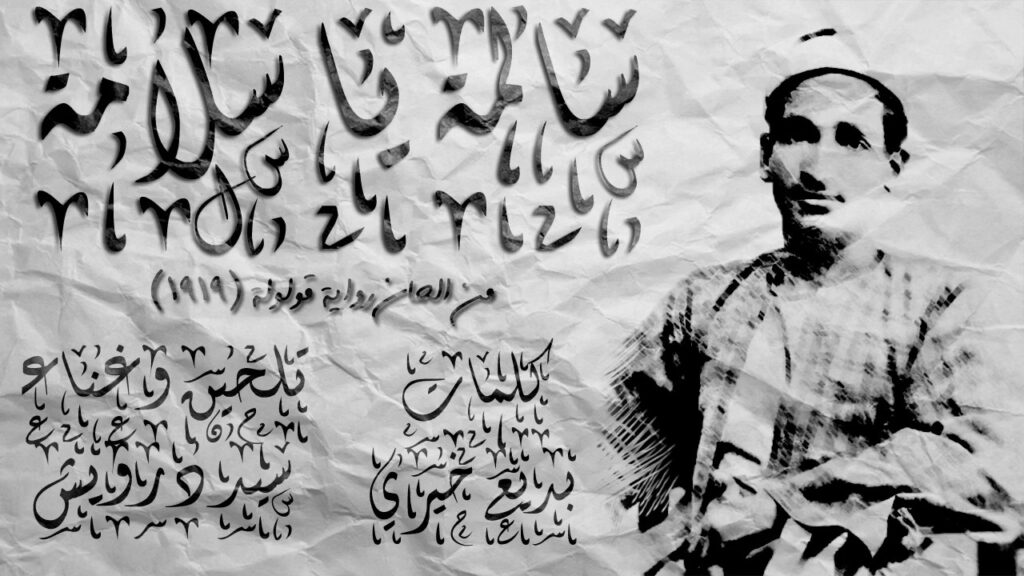 سالمة يا سلامة
من ألحان رواية قولوله (١٩١٩)
كلمات
بديع خيري
تلحين وغناء
سيد درويش